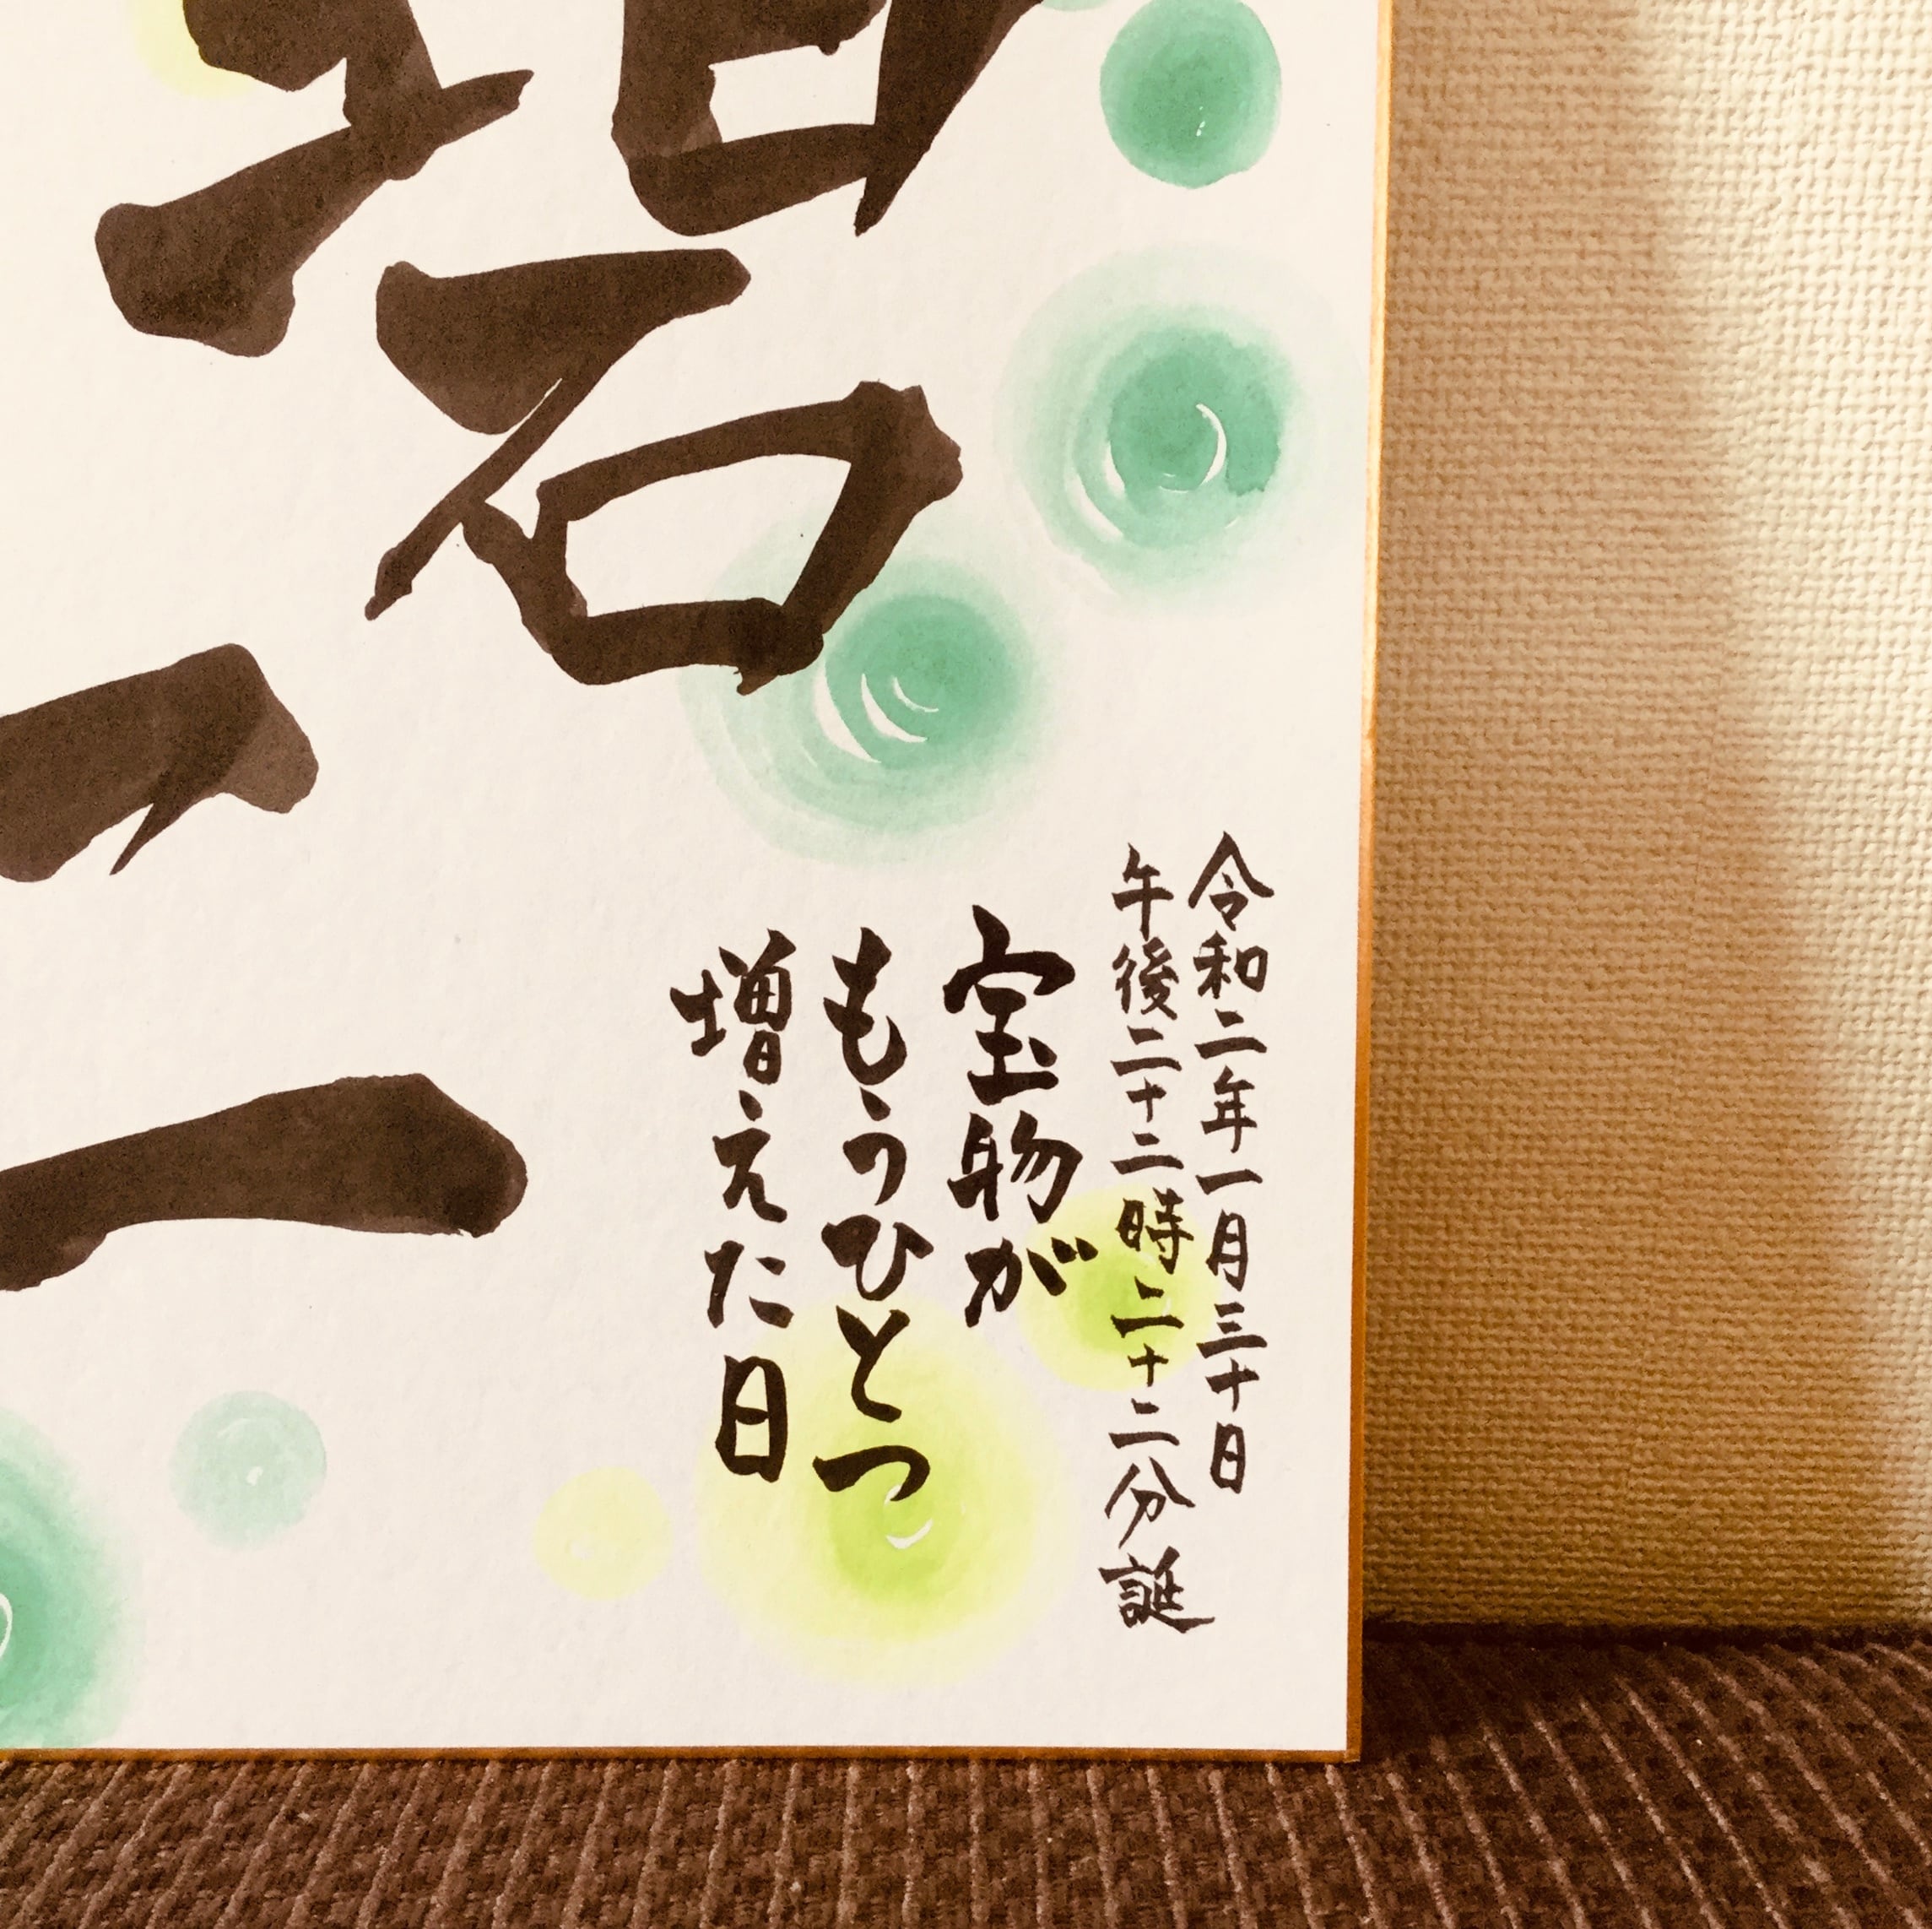 碧
令和二年一月三十日
午後二十二時二十二分誕
宝物が
もうひとつ
増えた日